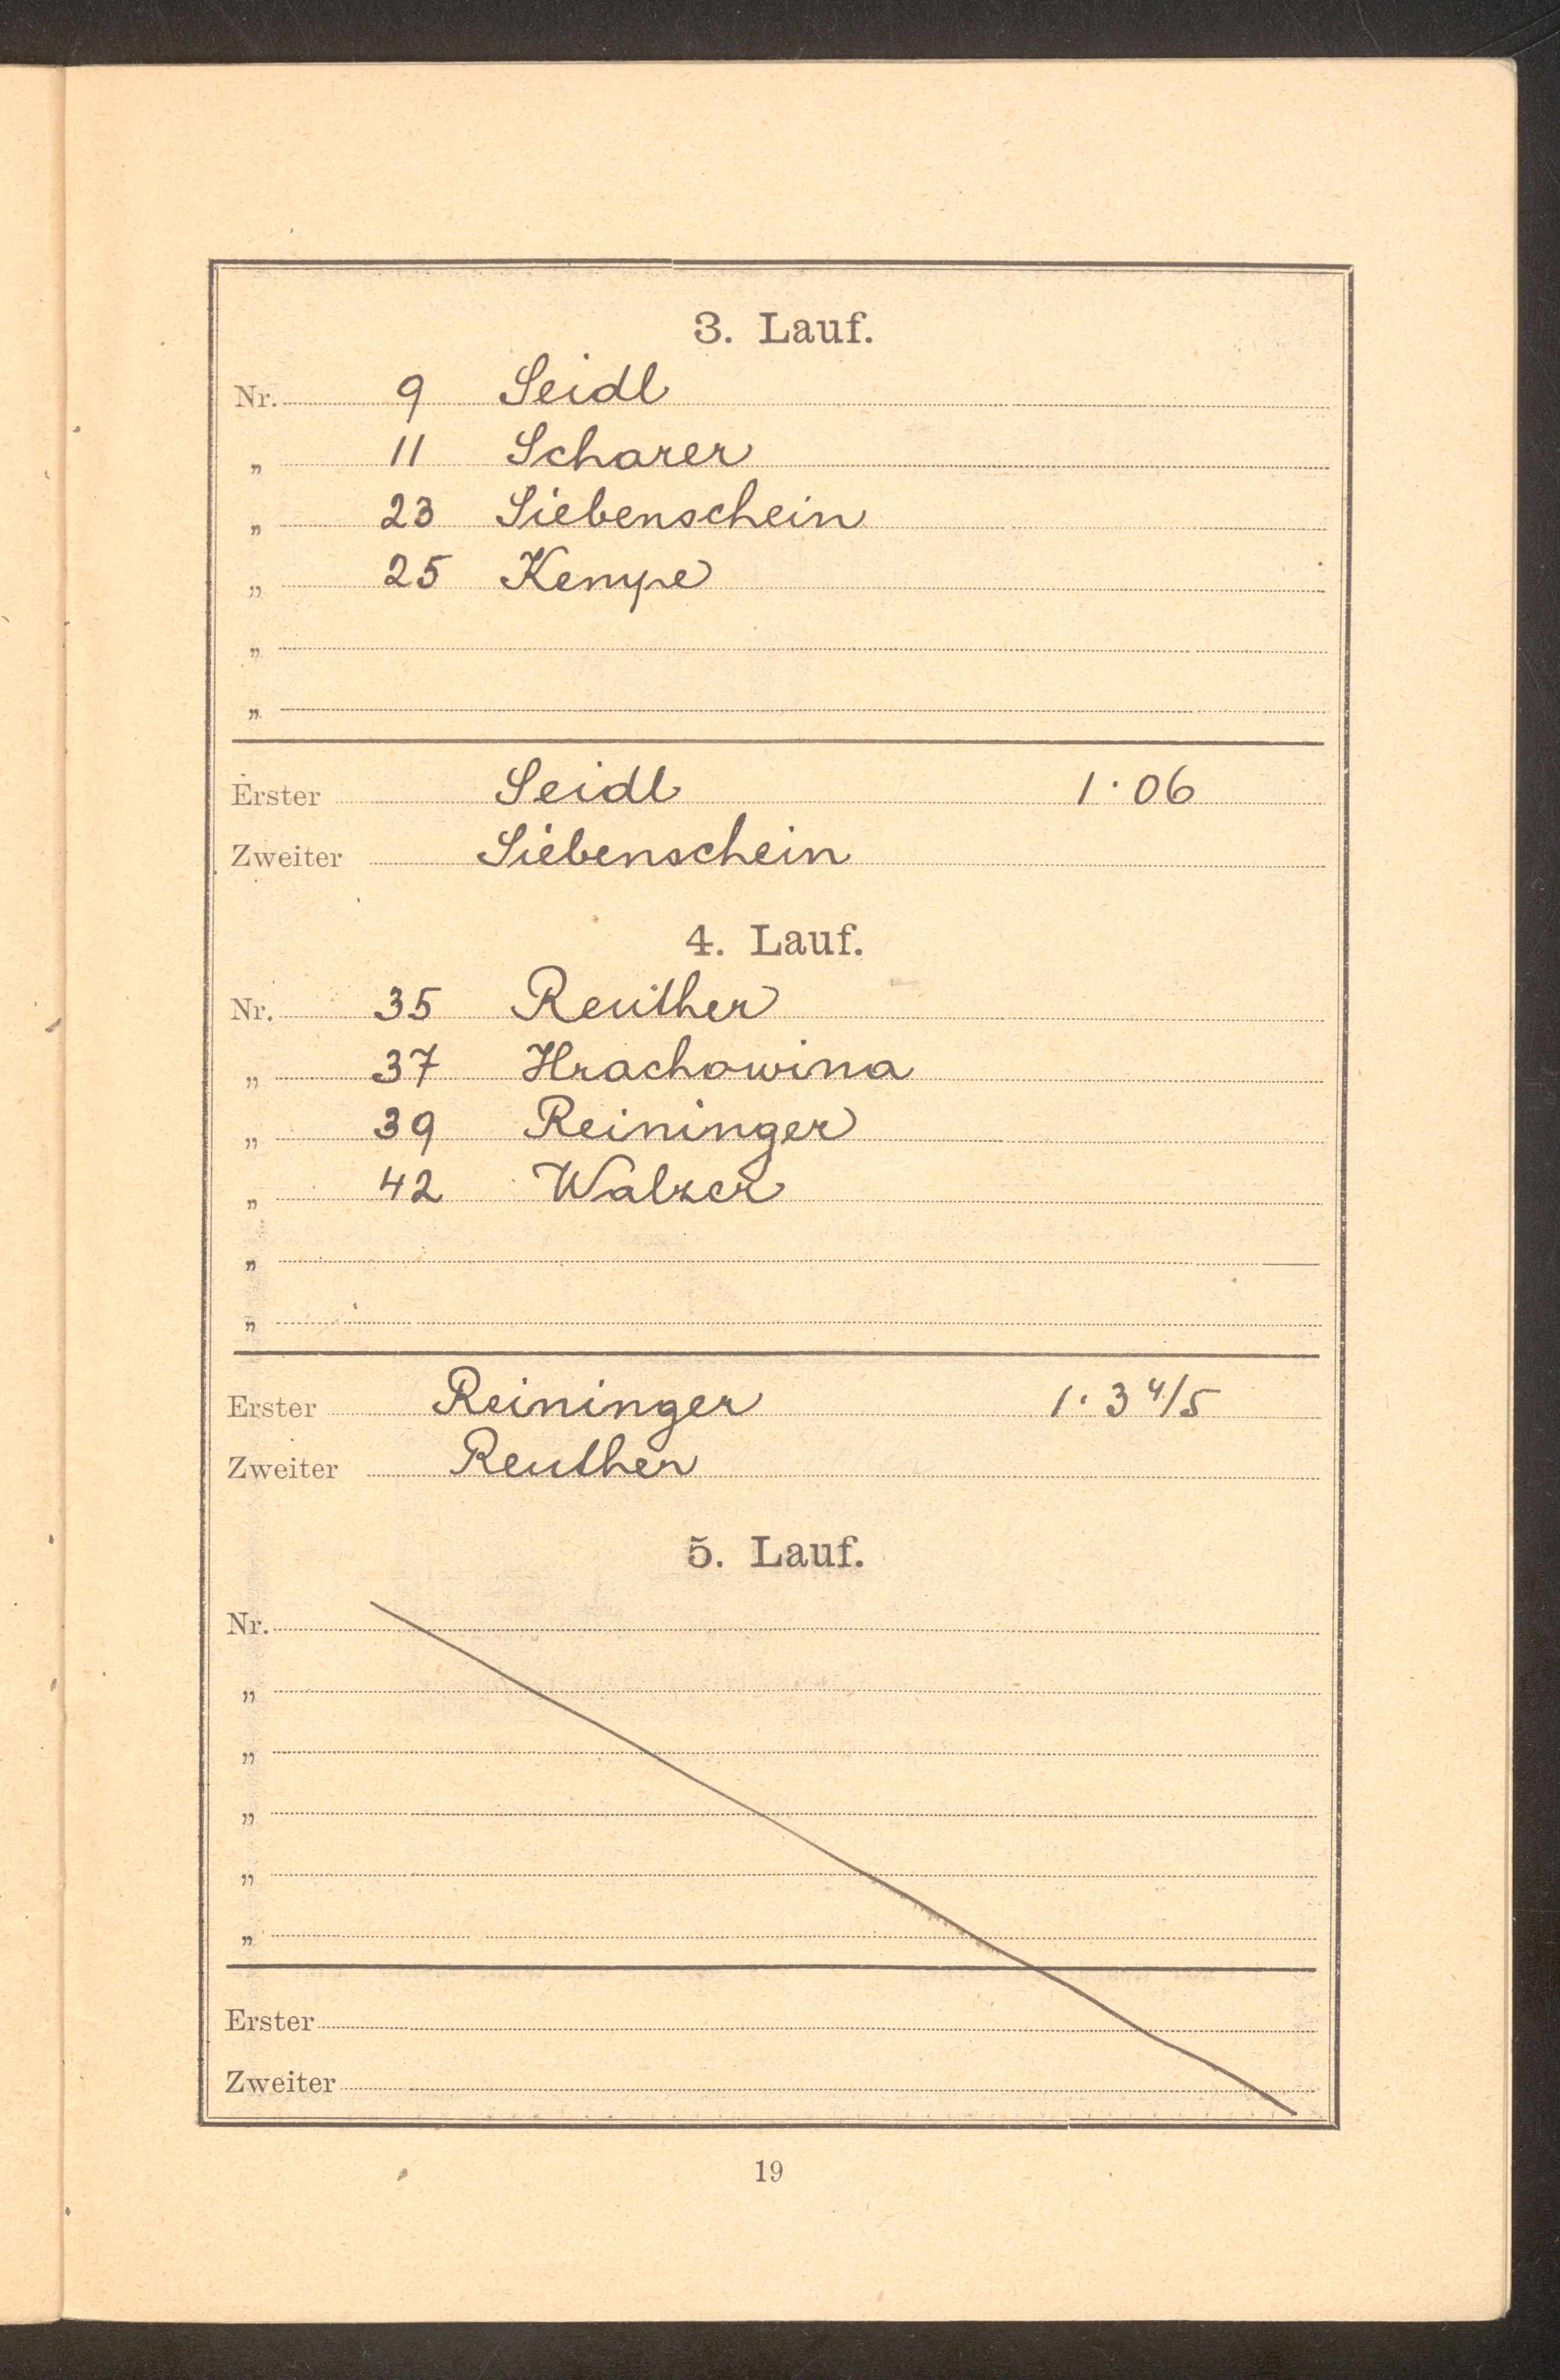 3. Lauf.
Nr. 9 Seidl
„ 11 Scharer
„ 23 Siebenschein
„ 25 Kempe
„
„
Erster Seidl 1·06
Zweiter Siebenschein
4. Lauf.
Nr. 35 Reuther
„ 37 Hrachowina
„ 39 Reininger
„ 42 Walzer
„
„
Erster Reininger 1·3 4/5
Zweiter Reuther
5. Lauf.
Nr.
„
„
„
„
„
Erster
Zweiter
19